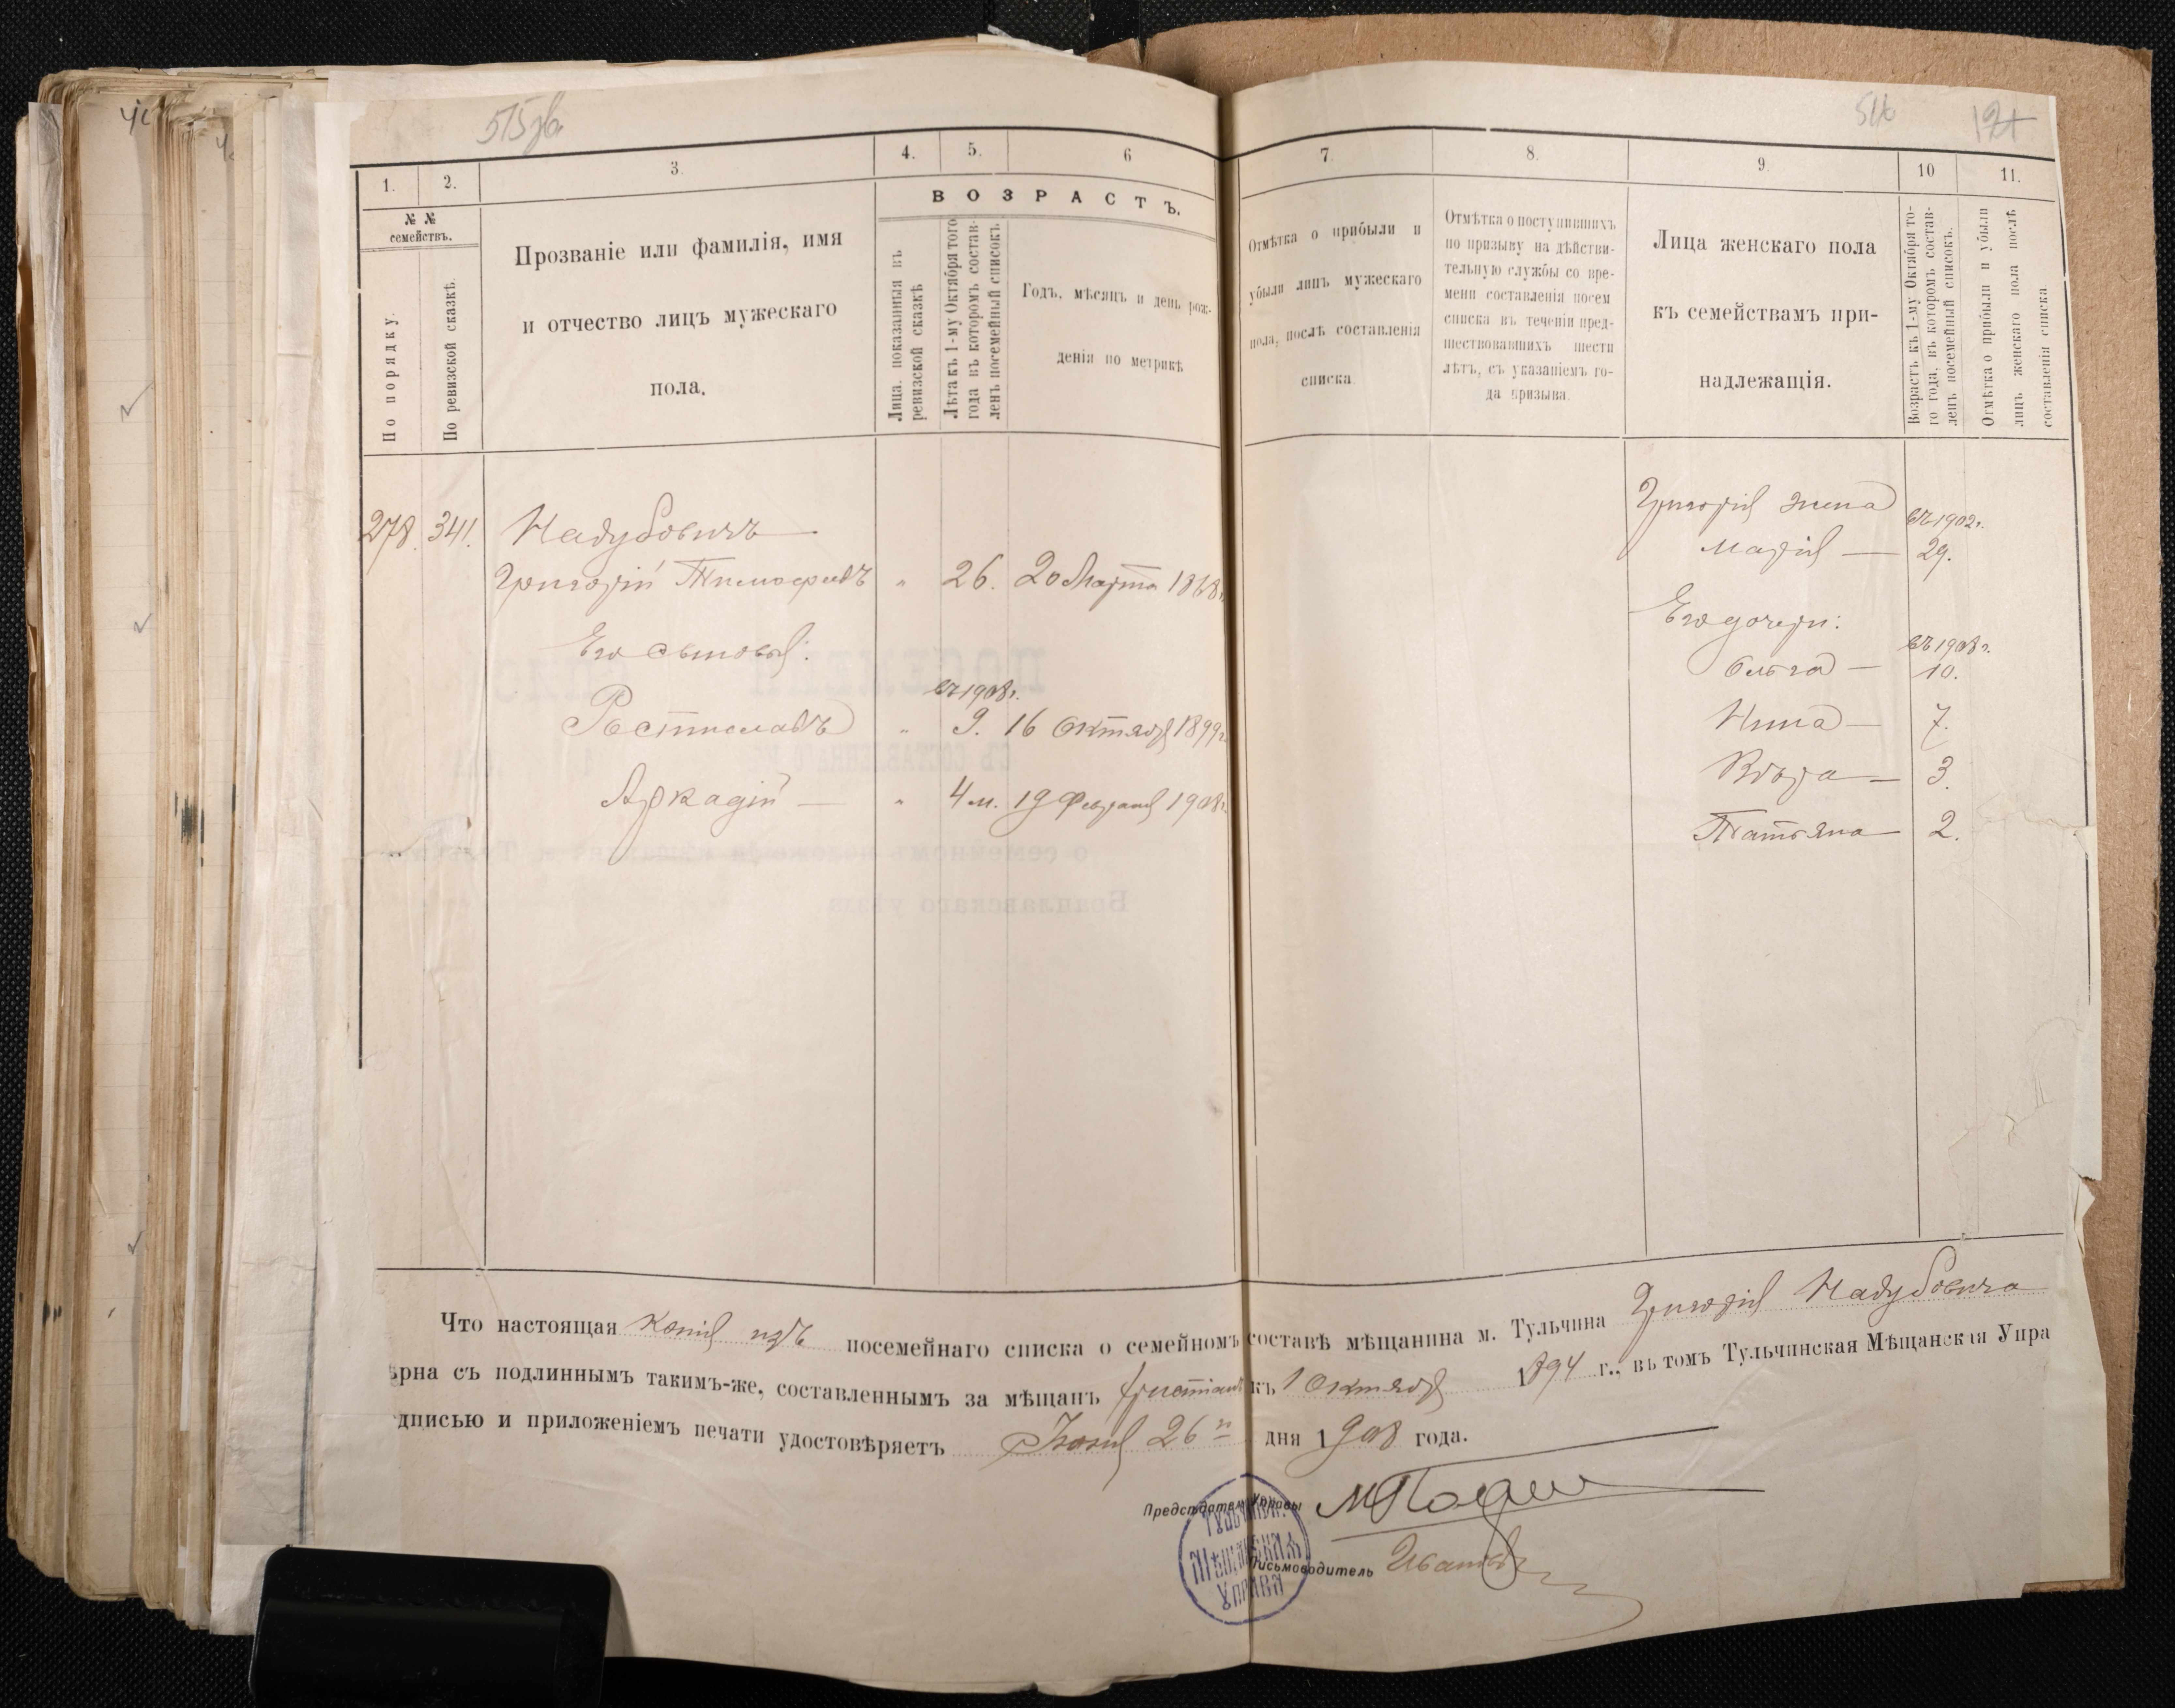 515 об.
1.
2.
3.
4.
5.
6
№ №
семействъ.
По порядку.
По ревизской сказкѣ.
Прозваніе или фамилія, имя
и отчество лицъ мужескаго
пола.
ВОЗРАСТЪ.
Лица, показанныя въ
ревизской сказкѣ
Лѣта къ 1-му Октября того
года въ которомъ состав-
ленъ посемейный списокъ
Годъ, мѣсяцъ и день рож-
денія по метрикѣ
278. 341. Надубовичъ
Григорій Тимофеевъ " 26. 20 Марта 1868 г.
Его сыновья:
въ 1908 г.
Ростиславъ " 9. 16 Октября 1899 г.
Аркадій — " 4 м. 19 Февраля 1908 г.
7.
8.
9.
10
11.
Отмѣтка о прибыли и
убыли лицъ мужескаго
пола, послѣ составленія
списка
Отмѣтка о поступившихъ
по призыву на дѣйстви-
тельную службы со вре-
мени составленія посем
списка въ теченіи пред-
шествовавшихъ шести
лѣтъ, съ указаніемъ го-
да призыва.
Лица женскаго пола
къ семействамъ при-
надлежащія.
Возрастъ къ 1-му Октября то-
го года, въ которомъ состав-
ленъ посемейный списокъ.
Отмѣтка о прибыли и убыли
лицъ женскаго пола послѣ
составленія списка
Григорія жена
въ 1902 г.
Марія — 29.
Его дочери:
въ 1908 г.
Ольга — 10.
Нина — 7.
Вѣра — 3.
Татьяна — 2.
Что настоящая копія изъ посемейнаго списка о семейномъ составѣ мѣщанина м. Тульчина Григорія Надубовича
ѣрна съ подлиннымъ такимъ-же, составленнымъ за мѣщанъ христіанъ къ 1 Октября 1894 г., въ томъ Тульчинская Мѣщанская Упра
дписью и приложеніемъ печати удостовѣряетъ Іюня 26 дня 1908 года.
Предсѣдатель Управы
Письмоводитель
Тульчин.
Мѣщанская
Управа